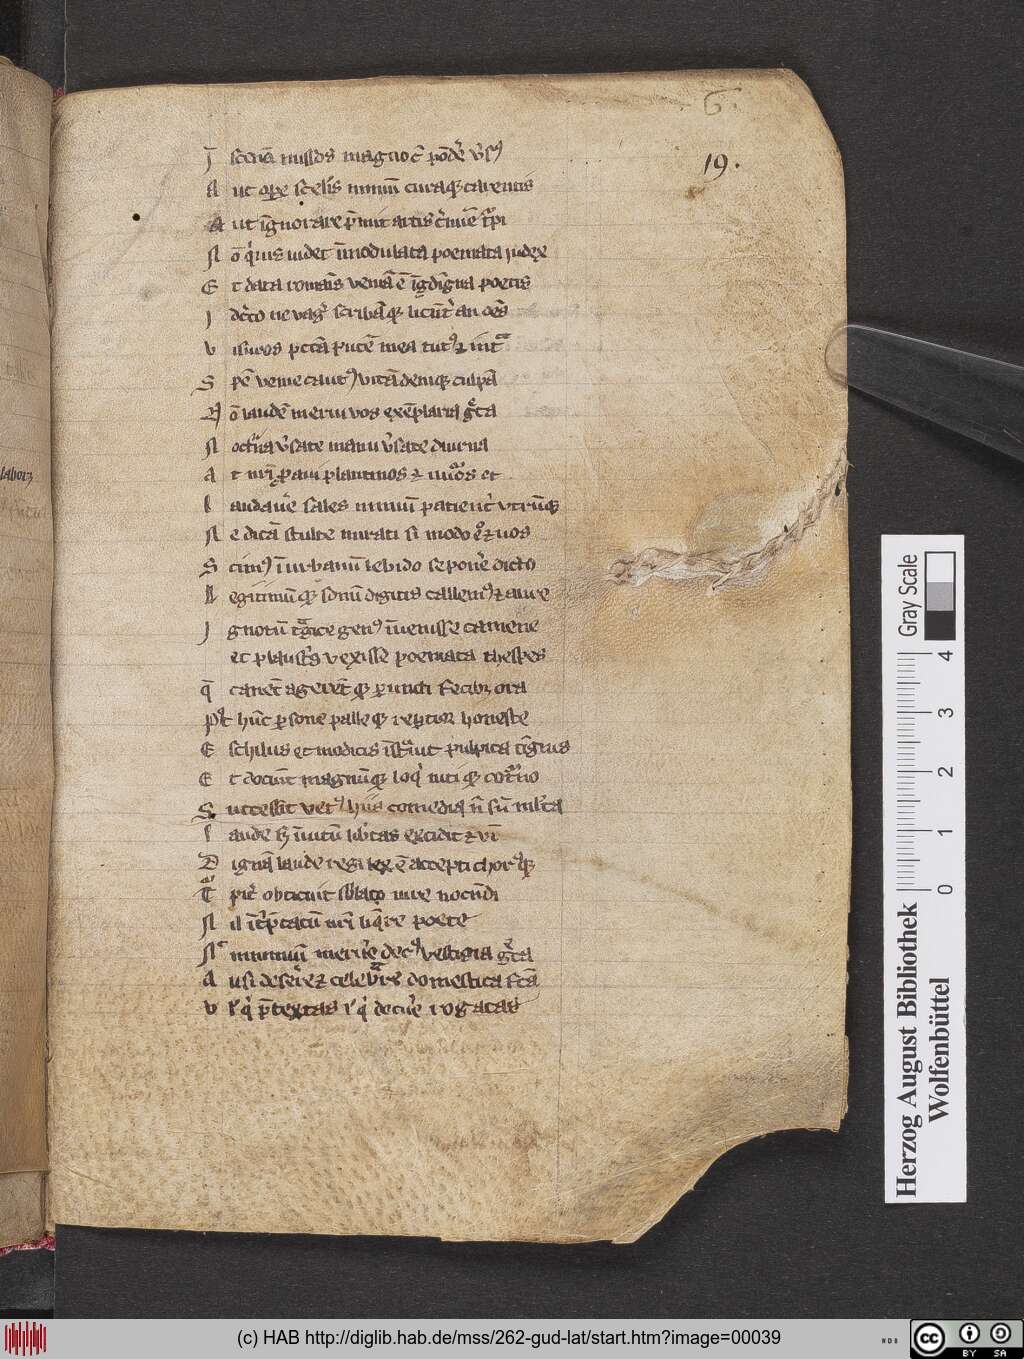 6.
19.
J scenā missos magno c̄ pōdẻ v̉sꝰ
A ut oꝑe scelis nimiū curaqꝫ carentis
A ut īgnorate p̄mit artis c̉mīe tᵉpi
N ō qⁱuis uidet īmodulata poemata iudex
E t data romāis veniā ē īgdīgna poetis
J dc̉co ne vag̉ scribāqꝫ licūt̉ an oēs
V isuros pctā putē mea tutꝰ ⁊ int̾
S pē venie cautꝰ vitā deniqꝫ culpā
N ō laudē merui vos exēplaria gͤca
N octn̉a v̉sate manu v̉sate diurna
A t nr̄i ꝓaui plautinos ⁊ nūos et
L audaue̾ sales nimiū patient̉ vtrūqꝫ
N e dicā stulte mirati si modo eº ⁊ uos
S cimꝰ īurbanū lebido seponẻ dicto
L egitimūqꝫ sonū digitis callemꝰ ⁊ aure
J gnotū tᵃgice genꝰ īuenisse camene
et plaustͥs vexisse poemata thespes
q̄ canēt agerētqꝫ ꝑuncti fecibꝫ ora
Pꝰt hūc ꝑsone palleqꝫ reꝑtor honeste
E schilus et modicis īstᵃuit pulpita tīgnis
E t docuit magnūqꝫ loqⁱ nitiqꝫ cotᵘno
S uccessit vetꝰ hiis comedia n̄ sn̄ mlᵗa
L aude sꝫ īuitiū lib̉tas excidit ⁊ vī
D ignā laude regi lex ē accepta chorꝰqꝫ
T ᵘpit̉ obticuit sublato iure nocēdi
N il īt̉ptatū nr̄i liqͤre poete
N ͨ minimū merue̾ decꝰ vestigia gͤca
A usi deserẻ ⁊ celebᵃre domestica fc̄a
V l̉ qⁱ p̄textas l̉ qⁱ docue̾ togatas
laborꝫ
Gray Scale
0 1 2 3 4
Herzog August Bibliothek
Wolfenbüttel
(c) HAB http://diglib.hab.de/mss/262-gud-lat/start.htm?image=00039
WDB
cc BY SA